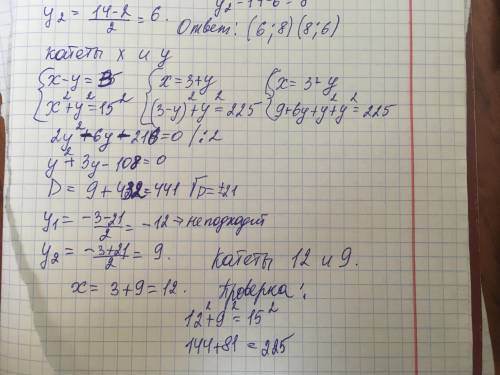 y₂ = (14-2)/2 = 6. y₂ = 14-6=8
Ответ: (6;8) (8;6)
катеты x и y
{x-y=3 {x=3+y {x=3+y
{x²+y²=15² {(3-y)²+y²=225 {9+6y+y²+y²=225
2y²+6y-216=0 /:2
y²+3y-108=0
D = 9+432=441 √D=±21
y₁ = (-3-21)/2 = -12 → не подходит
y₂ = (-3+21)/2 = 9. Катеты 12 и 9.
x = 3+9=12. Проверка:
12²+9²=15²
144+81=225